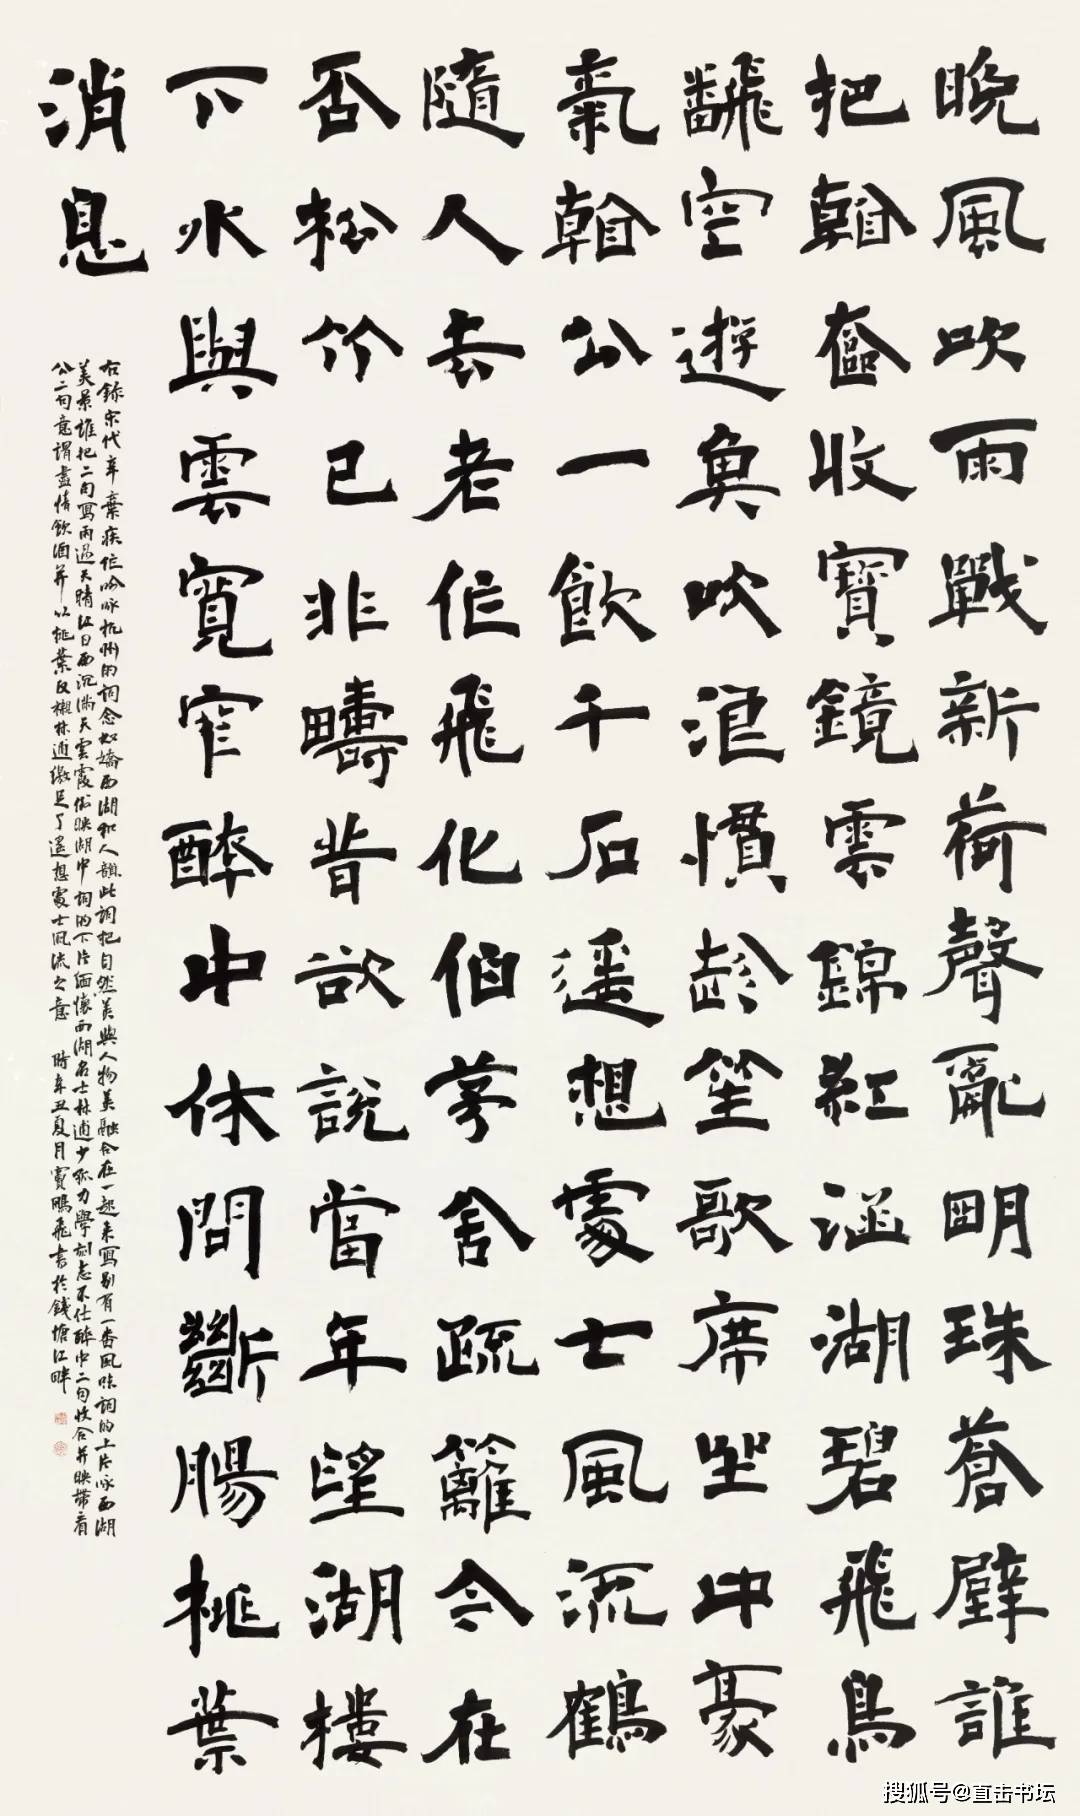 晚風吹雨戰新荷聲亂明珠蒼璧誰
把香奩收寶鏡雲錦紅涵湖碧飛鳥
翻空遊魚吹浪慣趁笙歌席坐中豪
氣看公一飲千石遙想處士風流鶴
隨人去老作飛化伯茅舍疏籬今在
否松竹已非疇昔欲說當年望湖樓
下水與雲寬窄醉中休問斷腸桃葉
消息
右錄宋代辛棄疾作吟詠杭州的詞念奴嬌西湖和人韻此詞把自然美與人物美融合在一起來寫別有一番風味詞的上片詠西湖
美景誰把二句寫雨過天晴江日西沉滿天雲霞倒映湖中詞的下片緬懷西湖名士林逋少孤力學刻志不仕醉中二句收合并映帶看
公二句意謂盡情飲酒并以桃葉反襯林逋足了遙想處士風流之意 時辛丑夏月竇鵬飛書於錢塘江畔
搜狐号@直击书坛